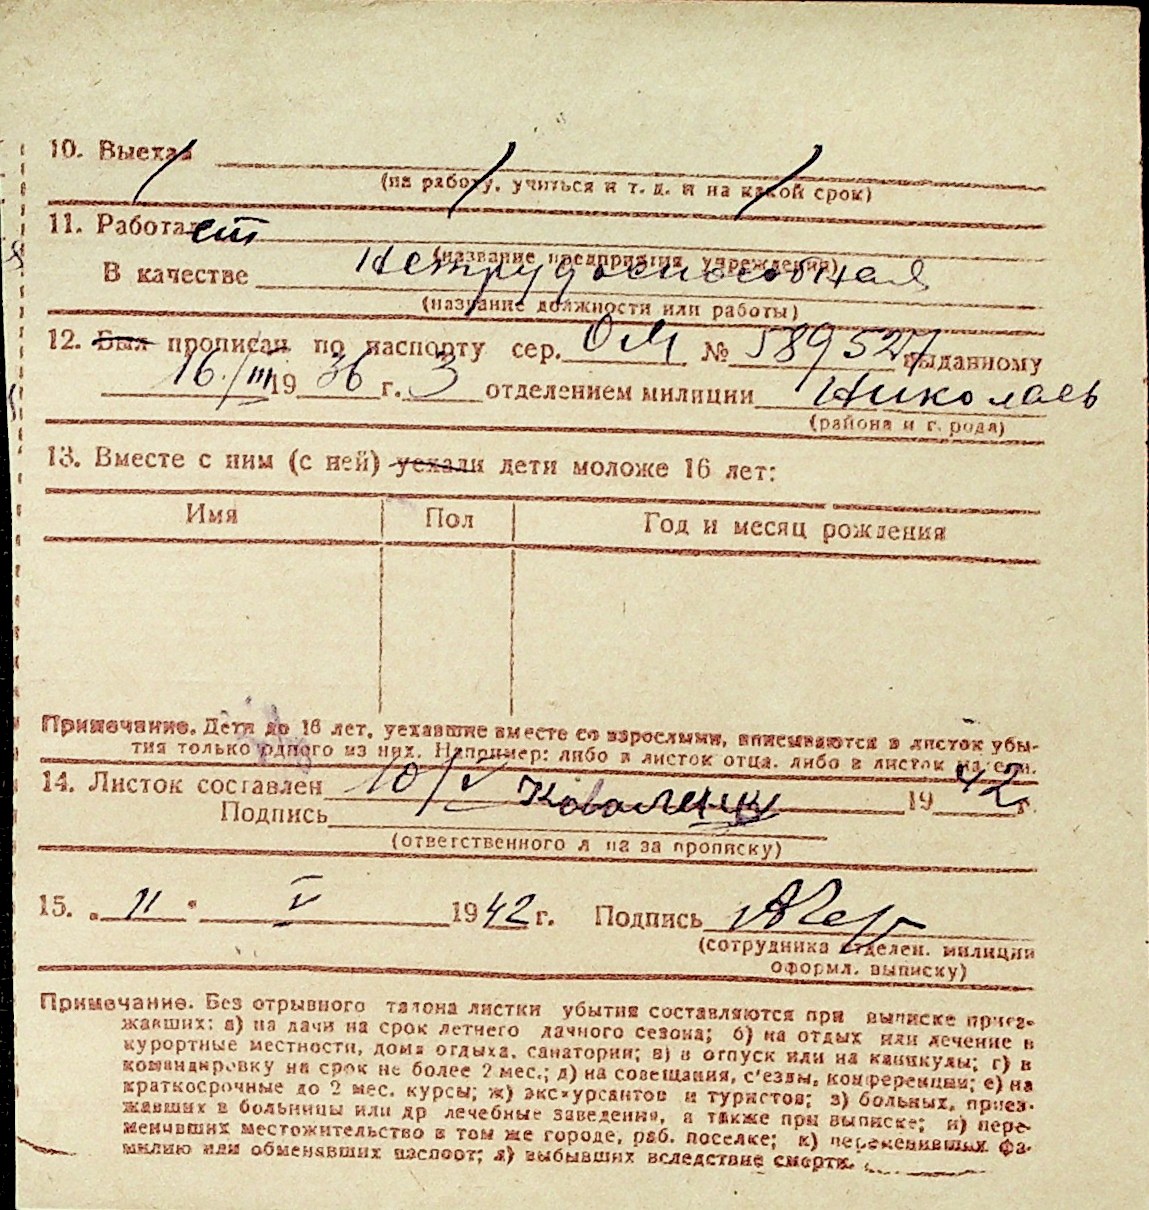 10. Выехал
(на работу, учиться и т. д. и на какой срок)
11. Работает
(название предприятия, учреждения)
В качестве нетрудоспособная
(название должности или работы)
12. Был прописан по паспорту сер. ОМ № 589527 выданному
16/III 1936 г. 3 отделением милиции Николаев
(района и города)
13. Вместе с ним (с ней) уехали дети моложе 16 лет:
Имя Пол Год и месяц рождения
Примечание. Дети до 16 лет, уехавшие вместе со взрослыми, вписываются в листок убы-
тия только одного из них. Например: либо в листок отца, либо в листок матери.
14. Листок составлен 10/V 1942 г.
Подпись Коваленко
(ответственного лица за прописку)
15. „11" V 1942 г. Подпись
(сотрудника отделен. милиции
оформл. выписку)
Примечание. Без отрывного талона листки убытия составляются при выписке приез-
жавших: а) на дачи на срок летнего дачного сезона; б) на отдых или лечение в
курортные местности, дома отдыха, санатории; в) в отпуск или на каникулы; г) в
командировку на срок не более 2 мес.; д) на совещания, с'езды, конференции; е) на
краткосрочные до 2 мес. курсы; ж) экскурсантов и туристов; з) больных, приез-
жавших в больницы или др лечебные заведения, а также при выписке; и) пере-
менивших местожительство в том же городе, раб. поселке; к) переменивших фа-
милию или обменявших паспорт; л) выбывших вследствие смерти.